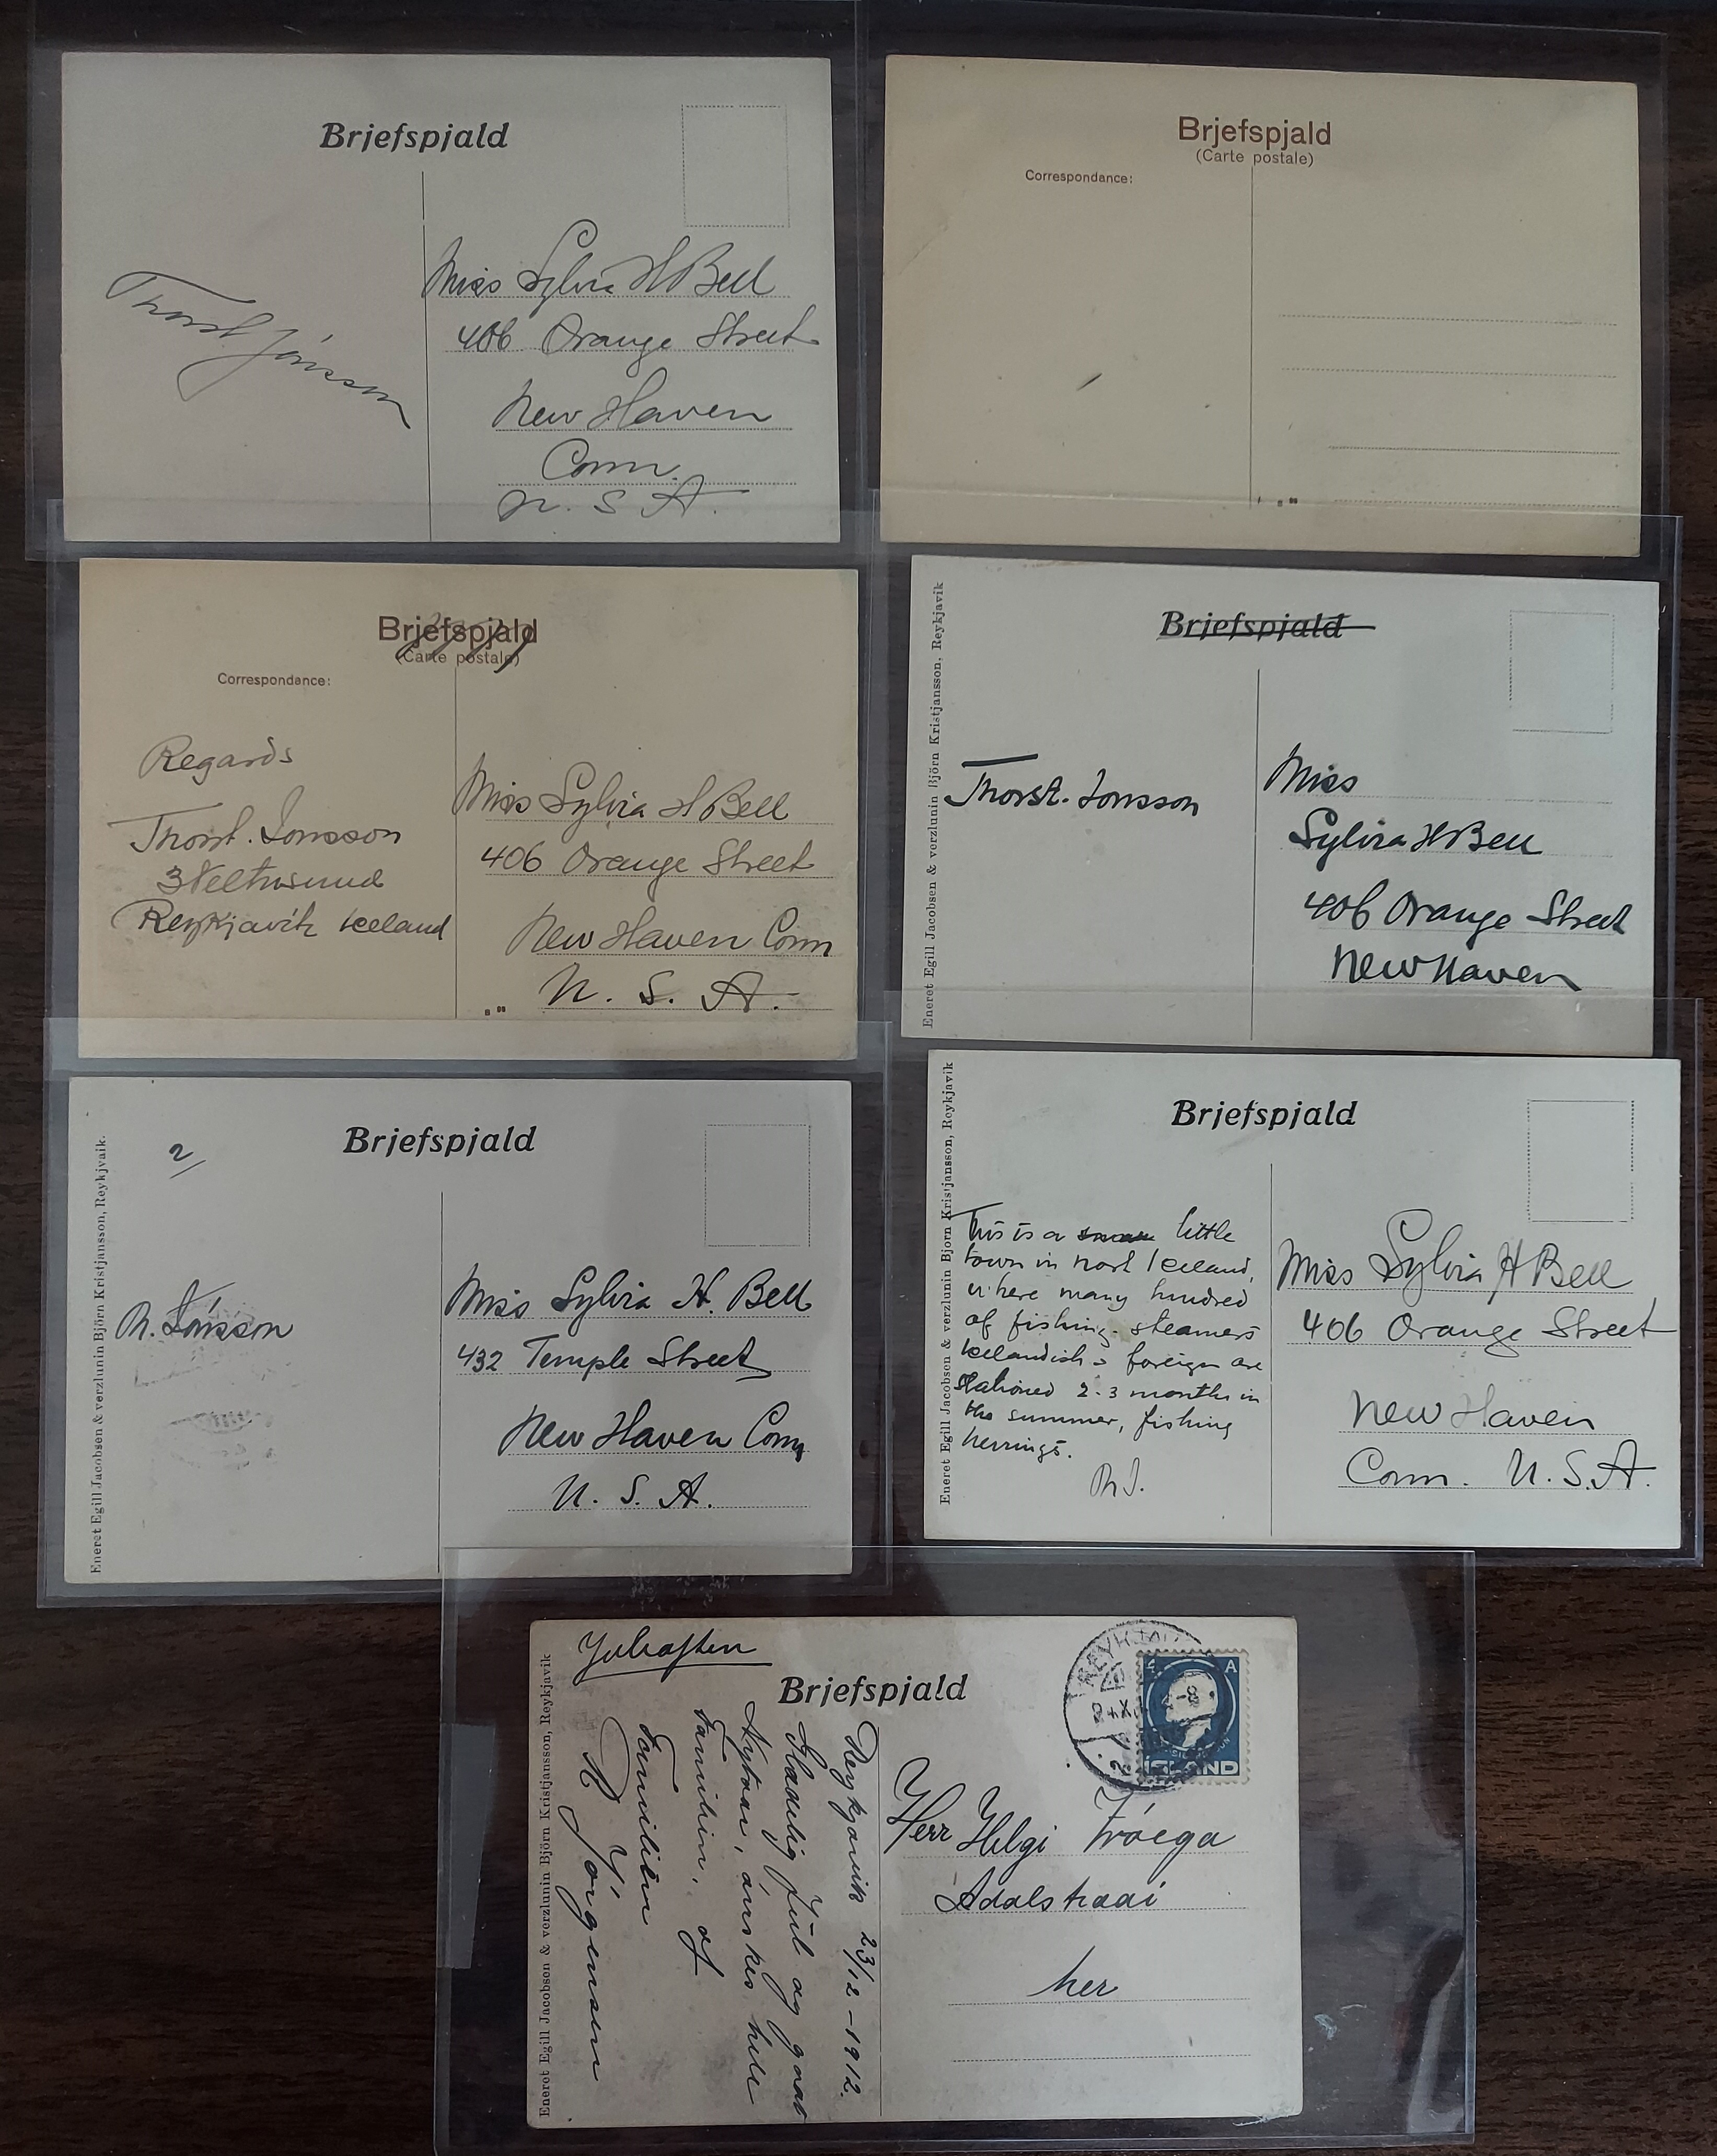 Brjefspjald
Thorst Jónsson
Miss Sylvia H Bell
406 Orange Street
New Haven
Conn.
U. S. A.
Brjefspjald
(Carte postale)
Correspondance:
Brjefspjald
(Carte postale)
Correspondance:
Regards
Thorst. Jonsson
3
Reykjavik Iceland
Miss Sylvia H Bell
406 Orange Street
New Haven Conn
U. S. A.
Eneret Egill Jacobsen & verzlunin Björn Kristjansson, Reykjavik
Brjefspjald
Thorst. Jonsson
Miss
Sylvia H Bell
406 Orange Street
New Haven
Eneret Egill Jacobsen & verzlunin Björn Kristjansson, Reykjvaik.
2
Brjefspjald
Th. Jónsson
Miss Sylvia H. Bell
432 Temple Street
New Haven Conn
U. S. A.
Eneret Egill Jacobsen & verzlunin Bjorn Kristjansson, Reykjavik
Brjefspjald
This is a little
town in nort Iceland,
where many hundred
of fishing-steamers
Icelandish & foreign are
stationed 2-3 months in
the summer, fishing
herrings.
Th J.
Miss Sylvia H Bell
406 Orange Street
New Haven
Conn. U.S.A.
Eneret Egill Jacobsen & verzlunin Björn Kristjansson, Reykjavik
Juleaften
Brjefspjald
Reykjavik 23/12 - 1912.
Glædelig Jul og godt
Nytaar, ønskes hele
Familien, af
Familien
Jörgensen
REYKJAVIK
4 A
ISLAND
Herr Helgi Zoëga
Adalstræti
her